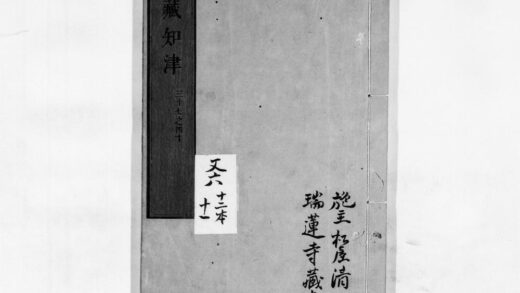 藏知津
三十七之四十
又六
十二本
十一
施主松屋清
瑞蓮寺藏